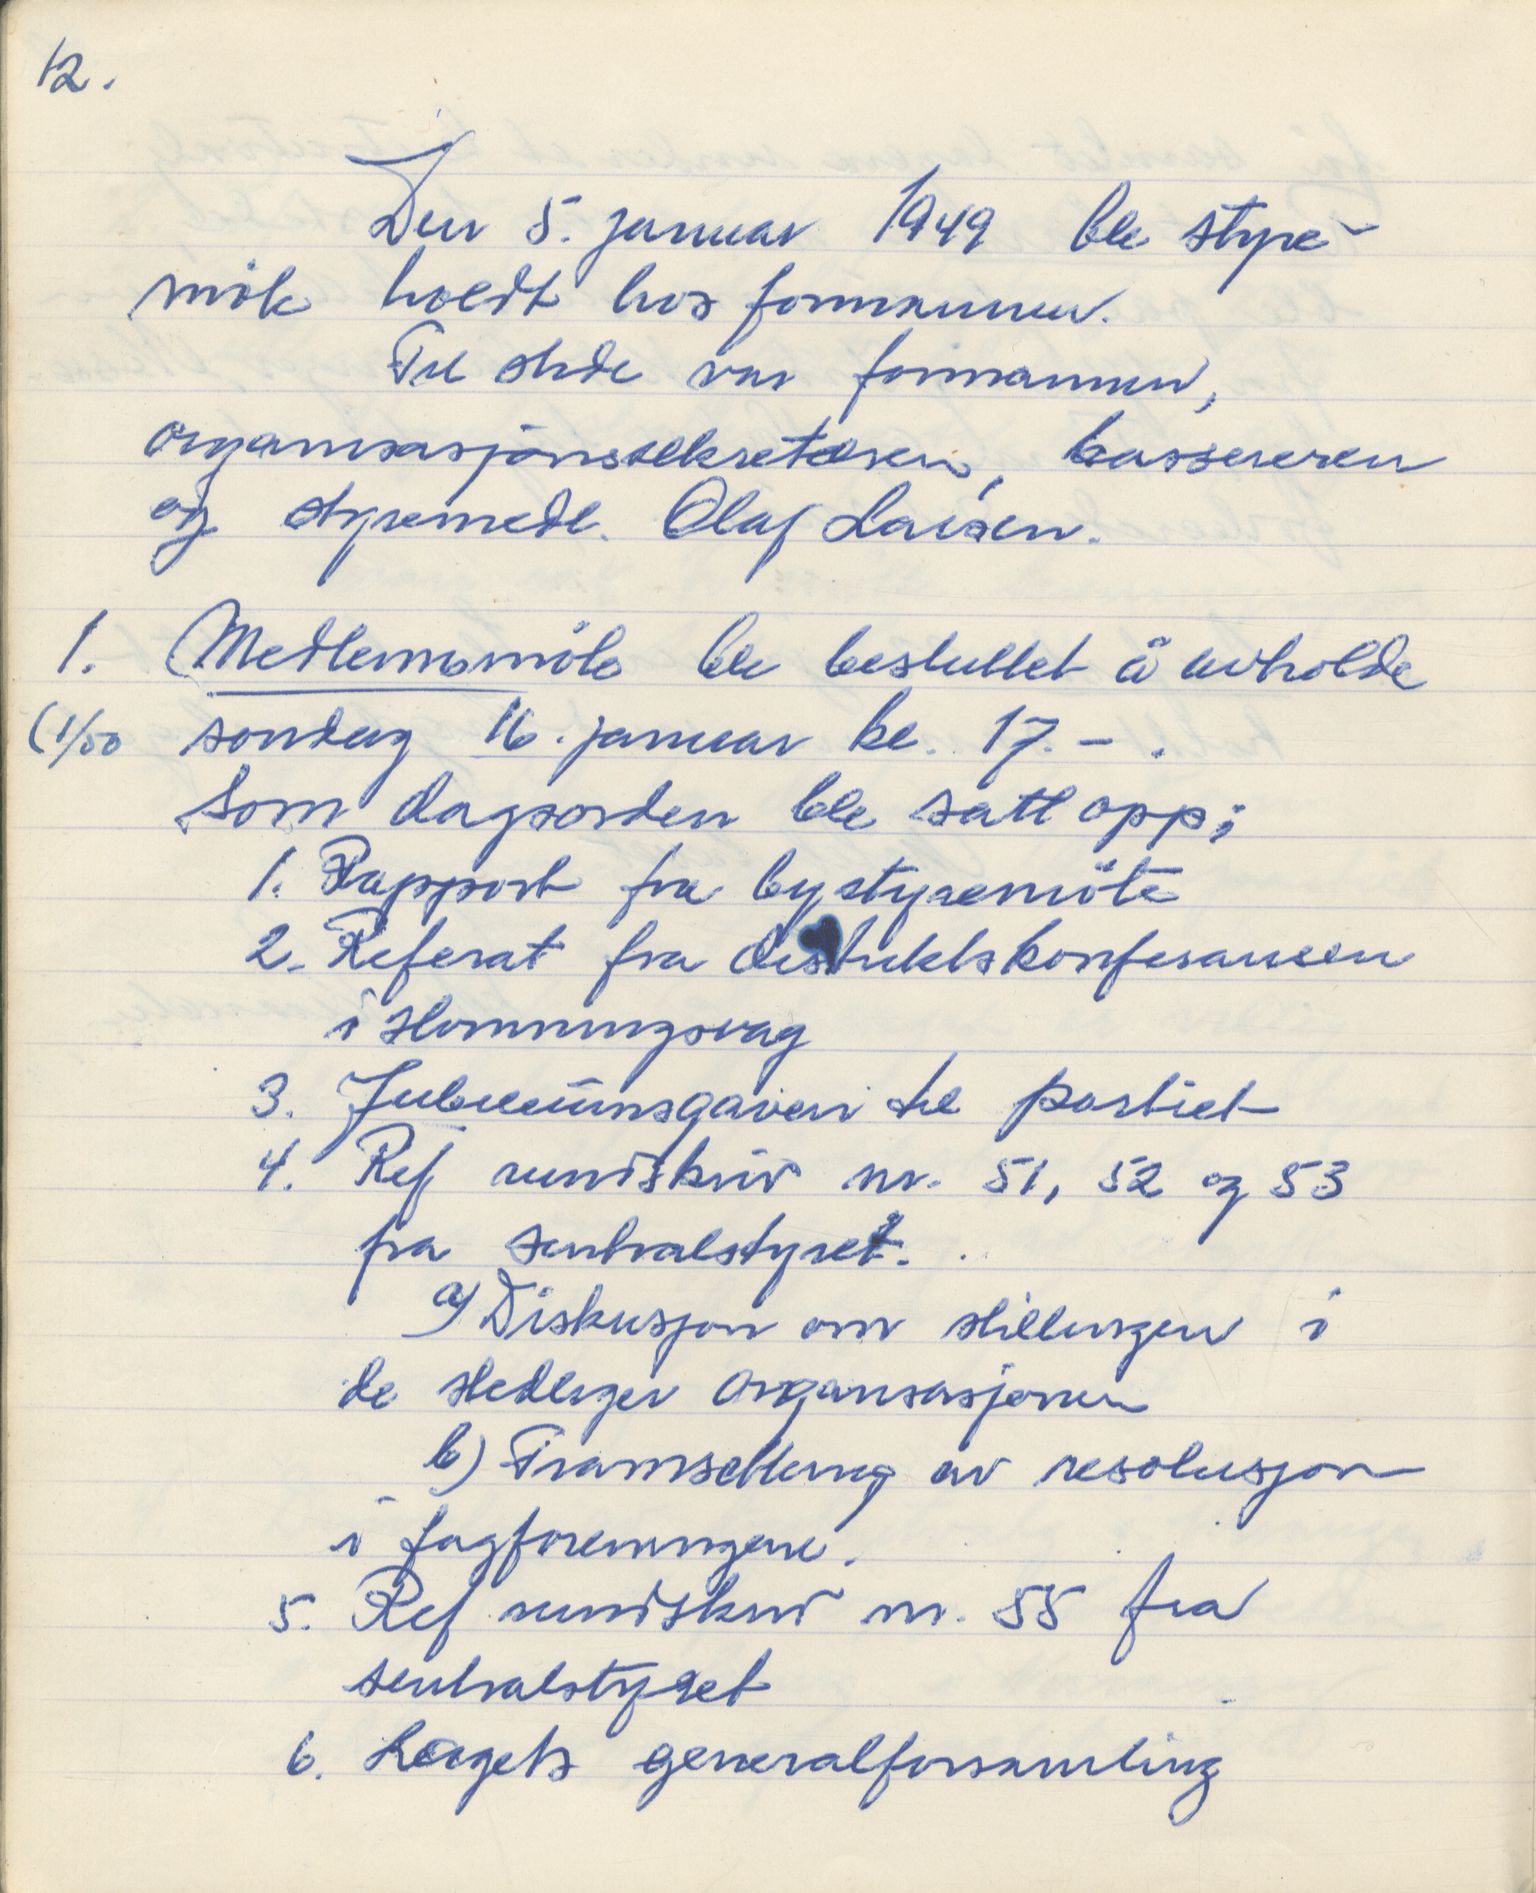 12.
Den 5. januar 1949 ble styre-
møte holdt hos formannen.
Til stede var formannen,
organisasjonssekretæren, kassereren
og styremedl. Olaf Larsen.
1. Medlemsmøte ble besluttet å avholde
(1/50 søndag 16. januar kl. 17.-.
Som dagsorden ble satt opp:
1. Rapport fra bystyremöte
2. Referat fra distriktskonferansen
i Honningsvåg
3. Jubileumsgaven til partiet
4. Ref rundskriv nr. 51, 52 og 53
fra sentralstyret.
a) Diskusjon om stillingen i
de stedlige organisasjoner
b) Framsetting av resolusjon
i fagforeningene.
5. Ref rundskriv nr. 55 fra
sentralstyret
6. Lagets generalforsamling